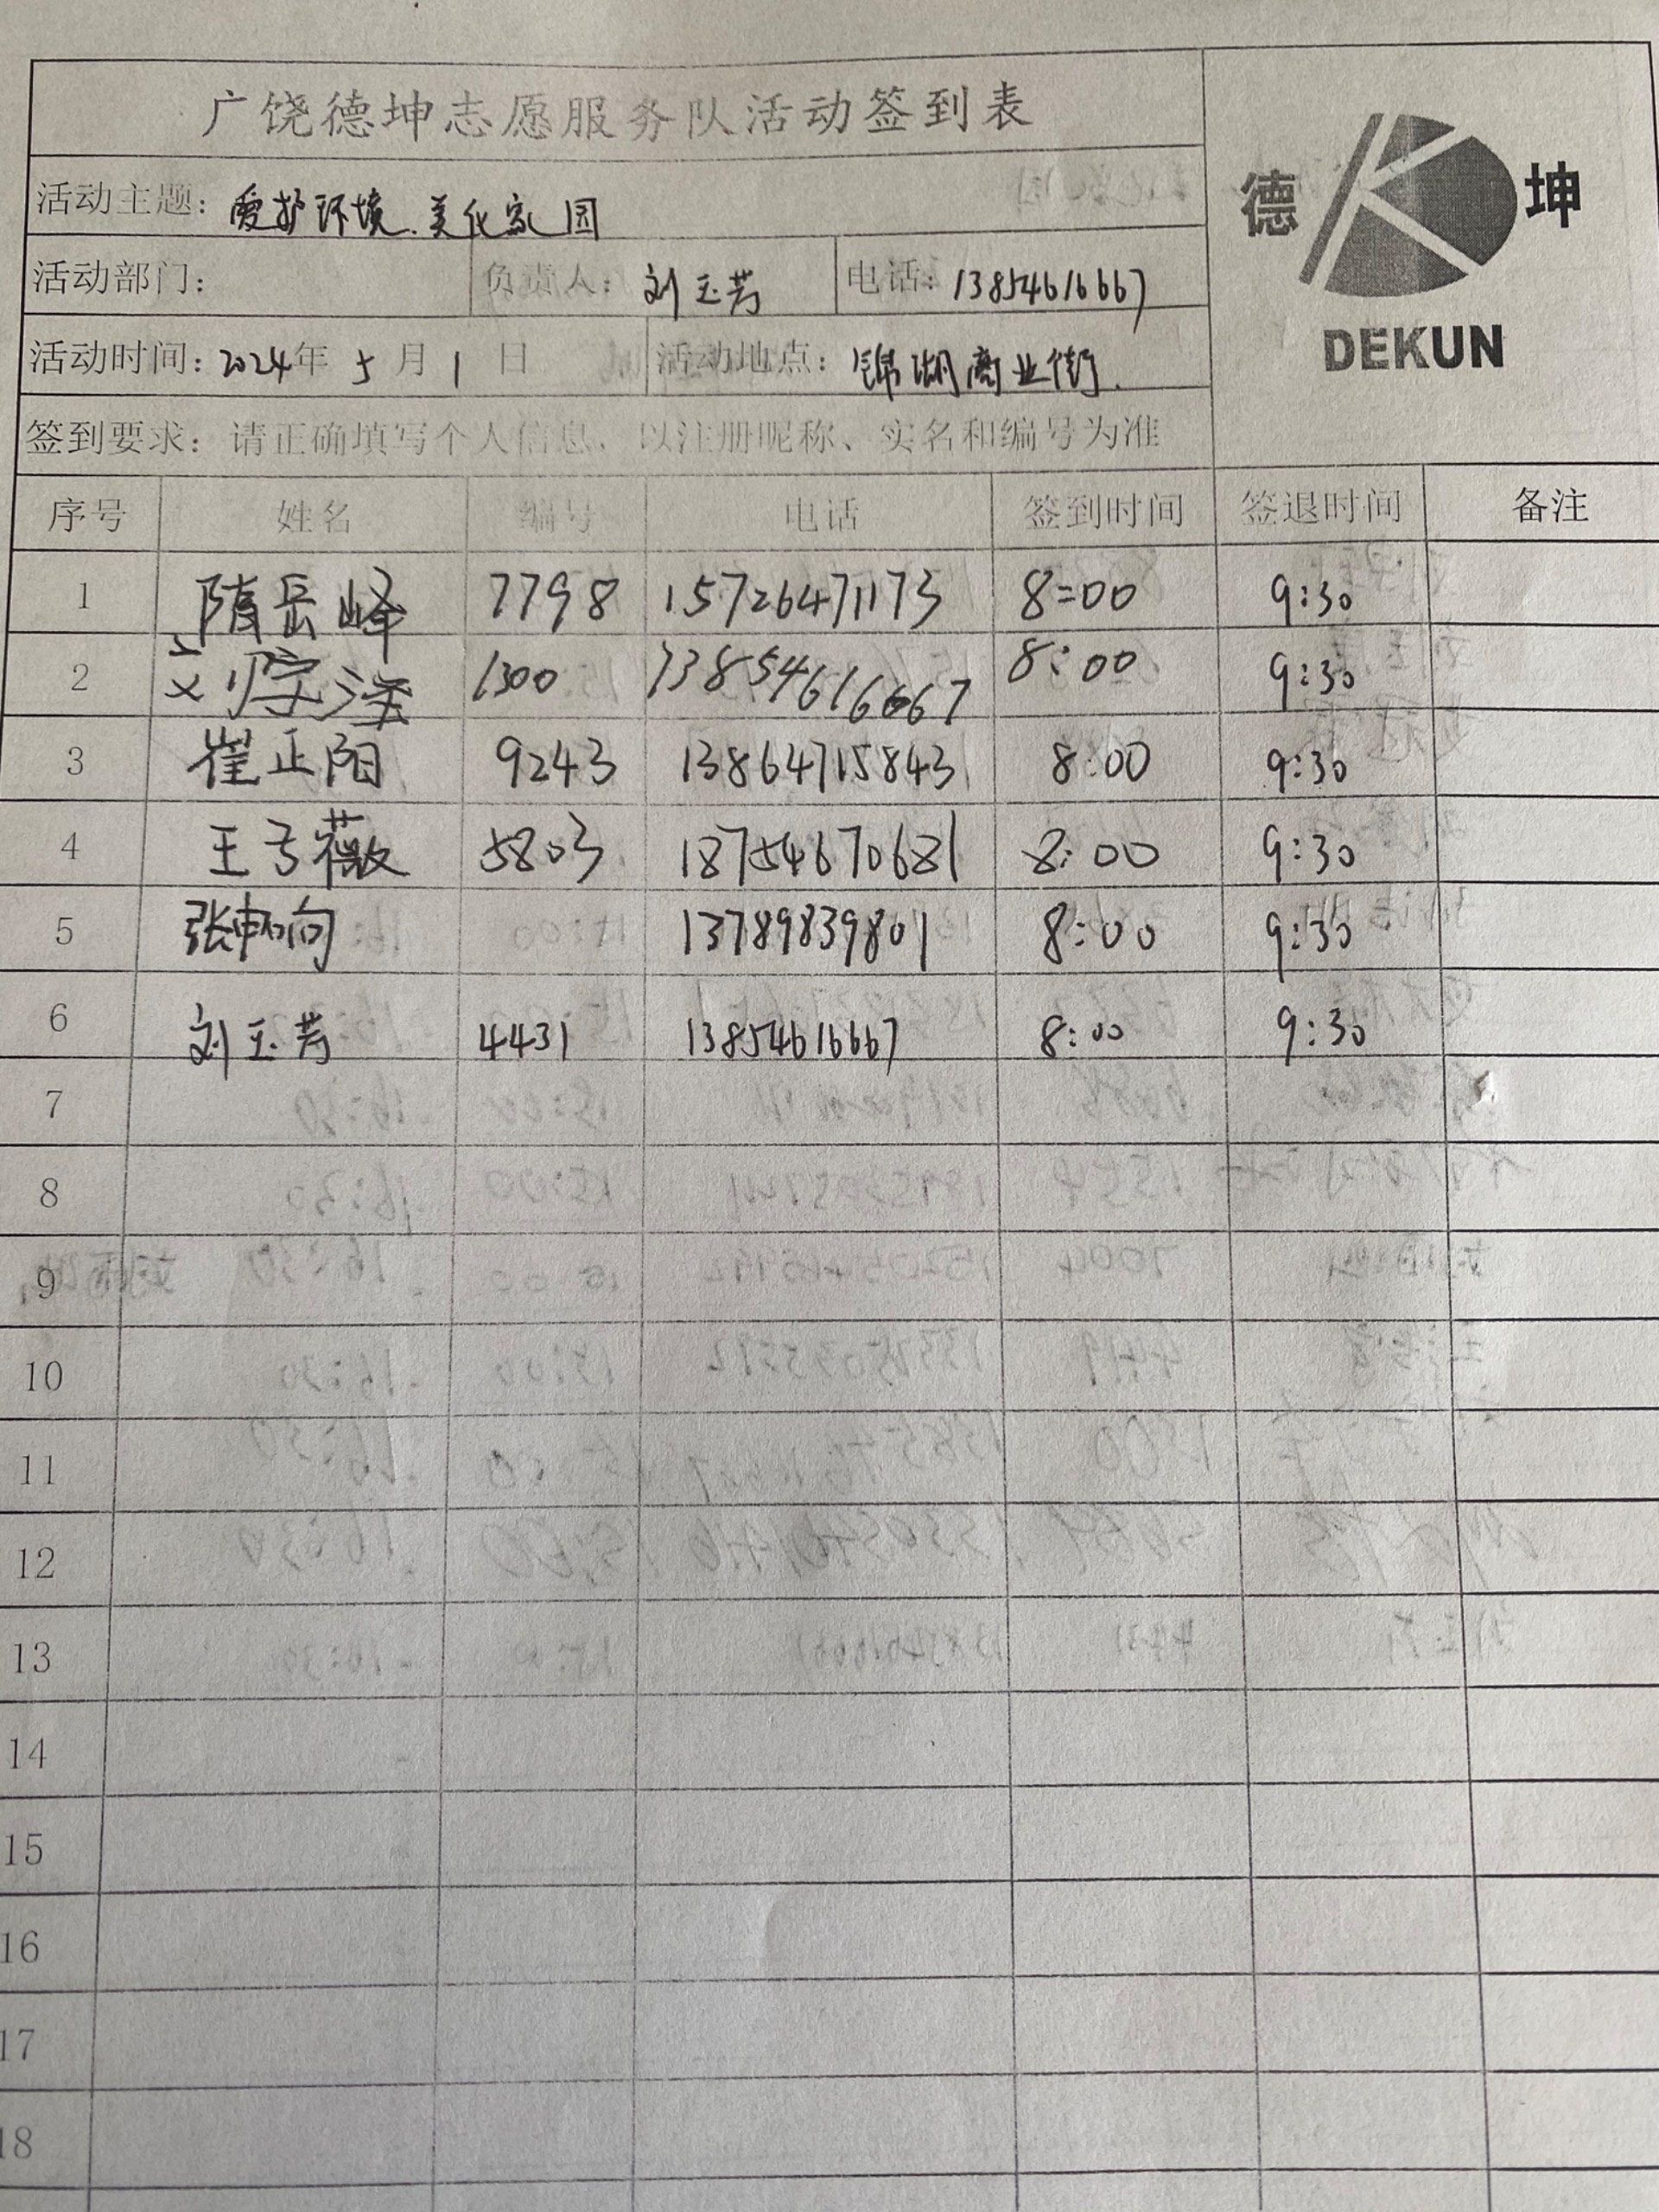 广饶德坤志愿服务队活动签到表
德 坤
DEKUN
活动主题：爱护环境.美化家园
活动部门： 负责人：刘玉芳 电话：13854616667
活动时间：2024年 5月 1日 活动地点：锦湖商业街.
签到要求：请正确填写个人信息，以注册昵称、实名和编号为准
序号 姓名 编号 电话 签到时间 签退时间 备注
1 隋岳峰 7798 15726471173 8:00 9:30
2 刘宗泽 1300 13854616667 8:00 9:30
3 崔正阳 9243 13864715843 8:00 9:30
4 王子薇 5803 18754670681 8:00 9:30
5 张 向 13789839801 8:00 9:30
6 刘玉芳 4431 13854616667 8:00 9:30
7
8
9
10
11
12
13
14
15
16
17
18